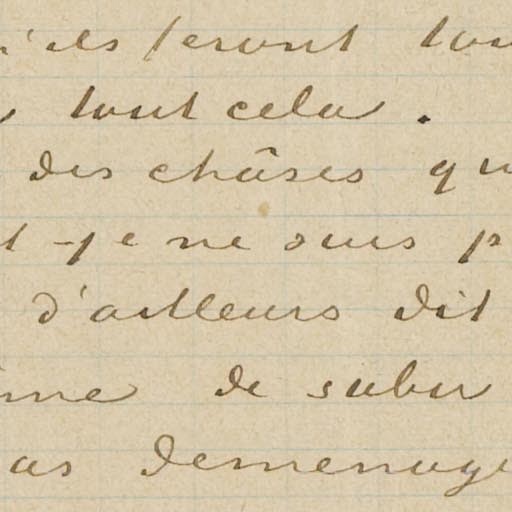 'ils feront tou
tout cela.
des châses qu
t-je ne suis p
d'ailleurs dit
me de subir
as demenage